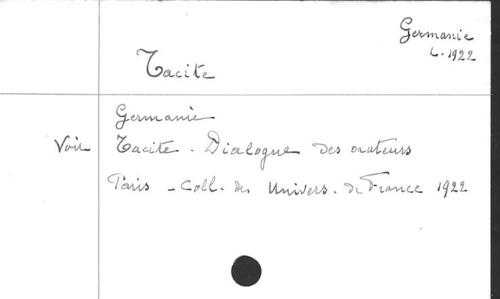 Germanie
L. 1922
Tacite
Germanie
Voir Tacite - Dialogue des orateurs
Paris - Coll. des Univers. de France 1922